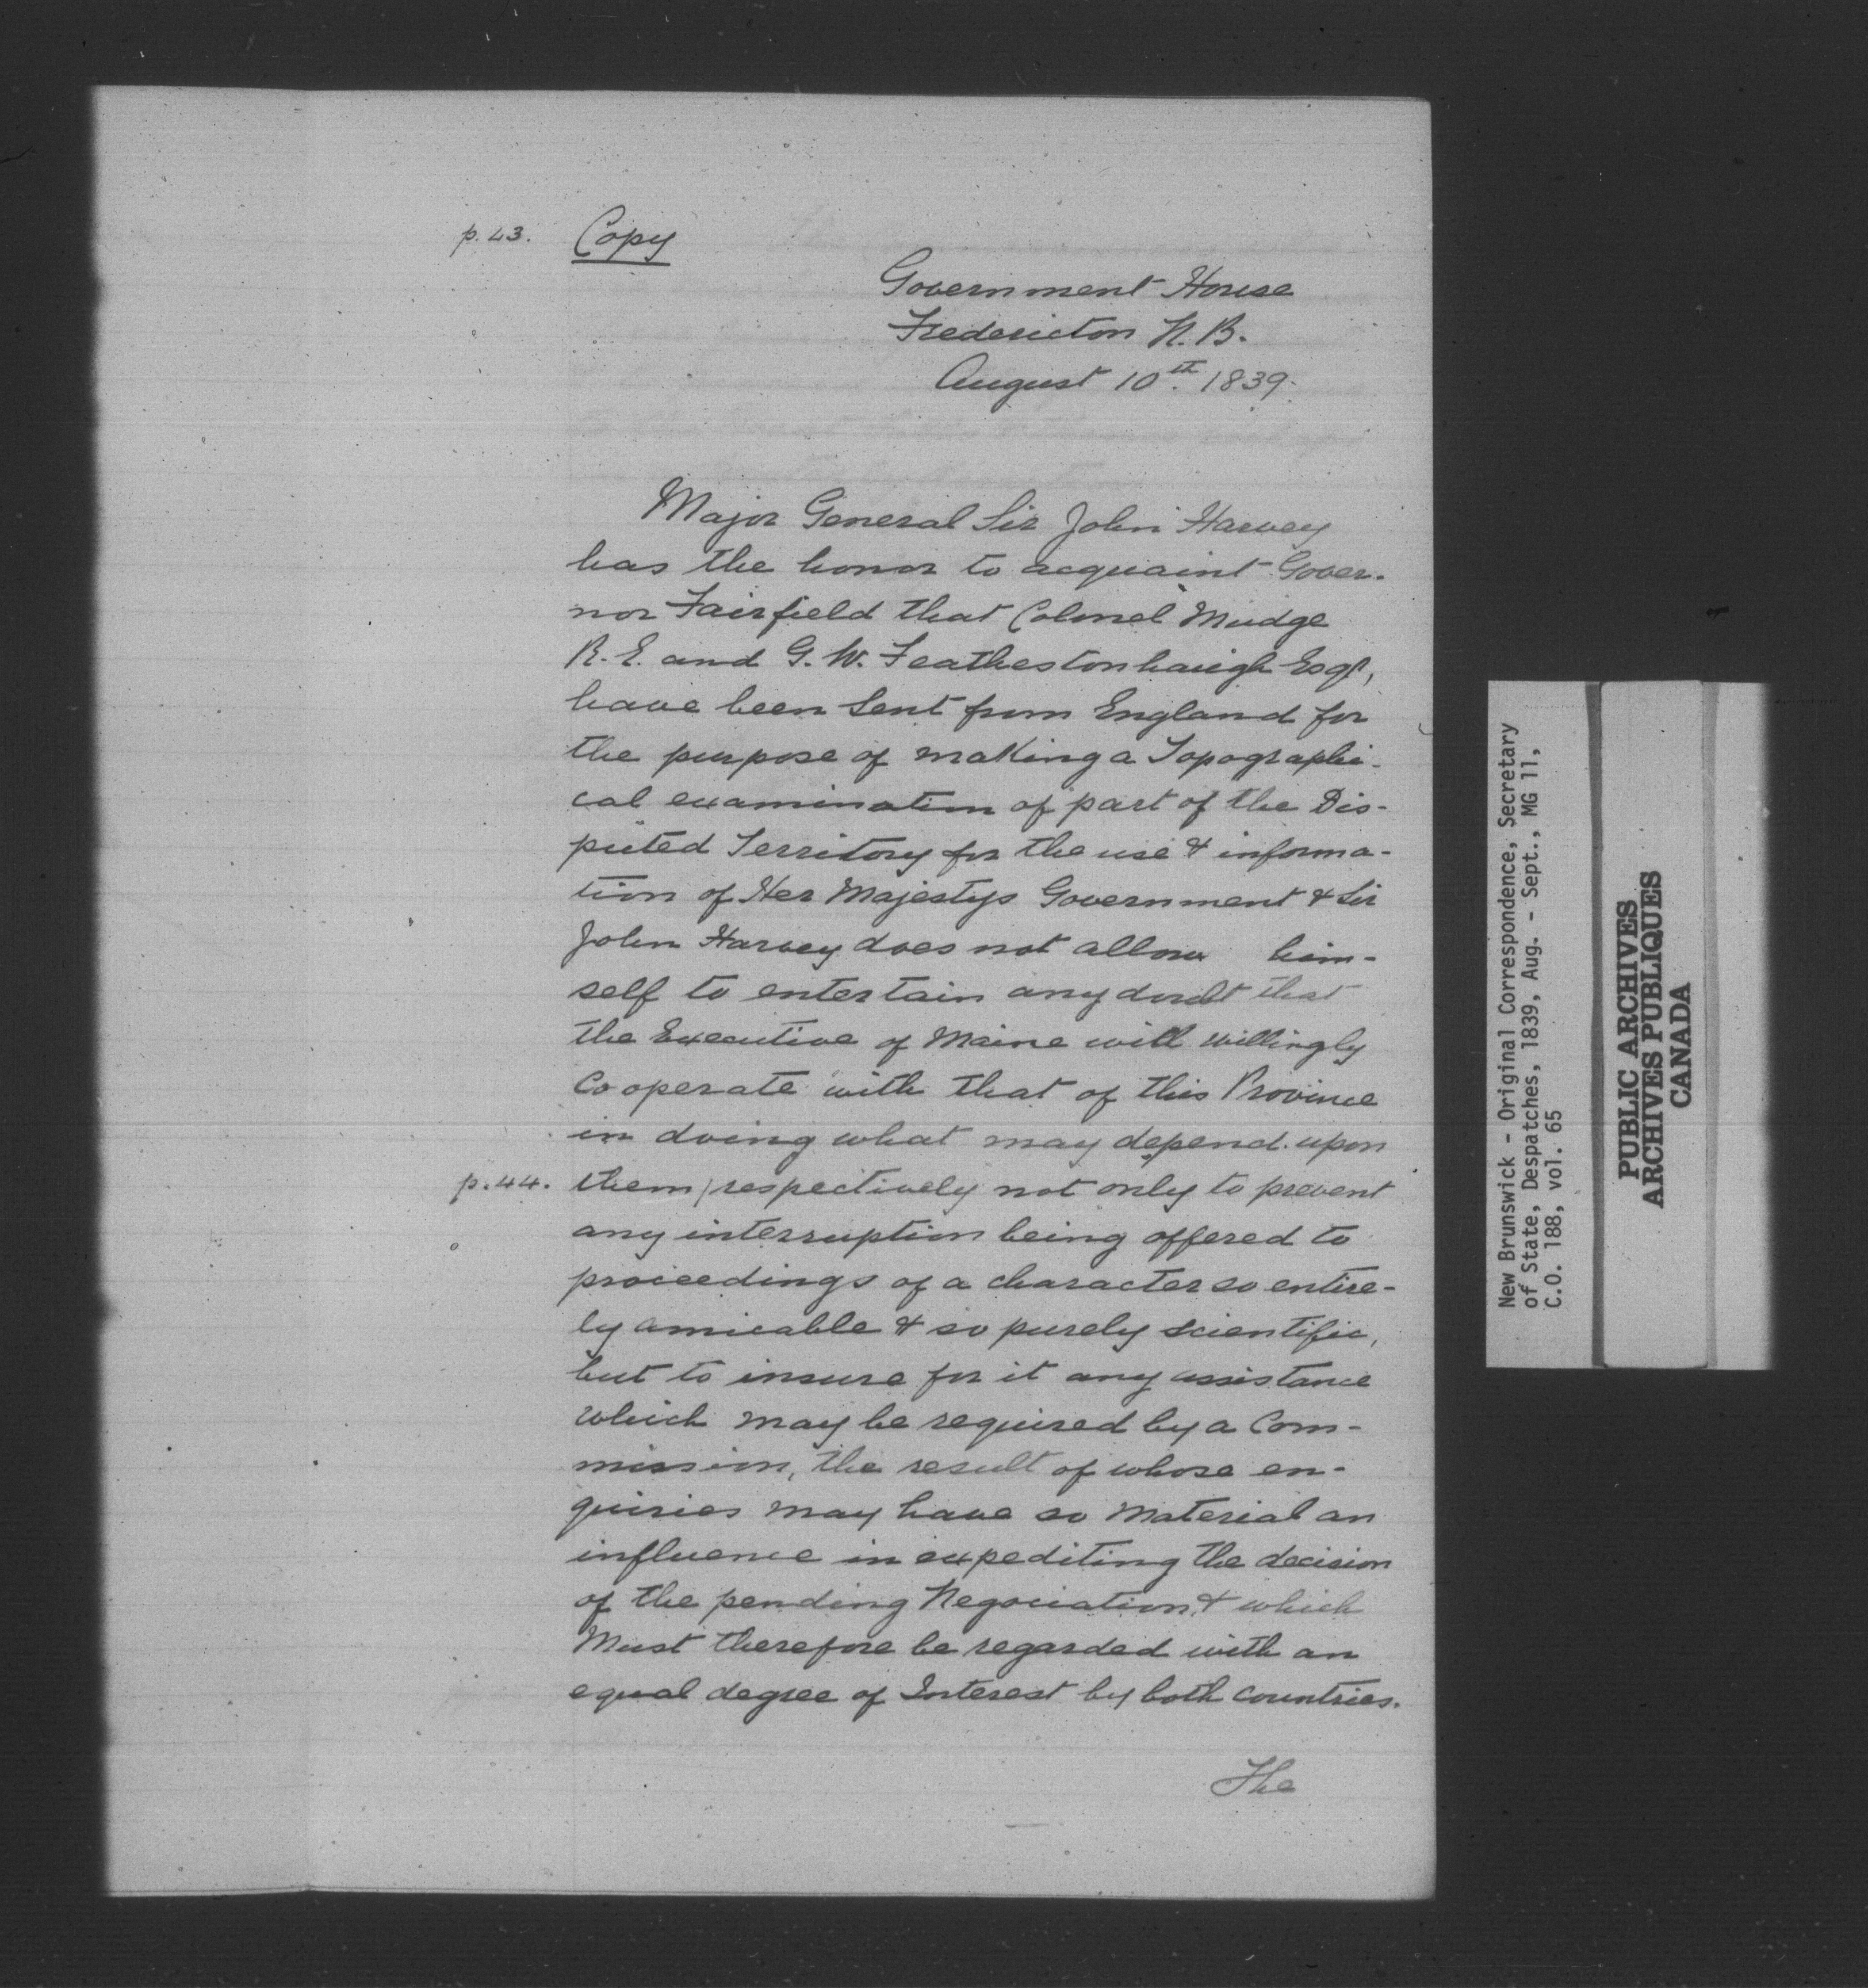 p.43. Copy
Government House
Fredericton N.B.
August 10th. 1839.
Major General Sir John Harvey
has the honor to acquaint Gover-
nor Fairfield that Colonel Mudge
R.E. and G.W. Featherstonhaugh Esqr,
have been sent from England for
the purpose of making a Topographi-
cal examination of part of the Dis-
puted Territory for the use & informa-
tion of Her Majestys Government & Sir
John Harvey does not allow him-
self to entertain any doubt that
the Executive of Maine will willingly
Co operate with that of this Province
in doing what may depend upon
p.44. them/respectively not only to prevent
any interruption being offered to
proceedings of a character so entire-
ly amicable & so purely scientific,
but to insure for it any assistance
which may be required by a Com-
mission, the result of whose en-
quiries may have so material an
influence in expediting the decision
of the pending Negociation, & which
Must therefore be regarded with an
equal degree of Interest by both countries.
The
New Brunswick - Original Correspondence, Secretary
of State, Despatches, 1839, Aug. - Sept., MG 11,
C.O. 188, vol. 65
PUBLIC ARCHIVES
ARCHIVES PUBLIQUES
CANADA